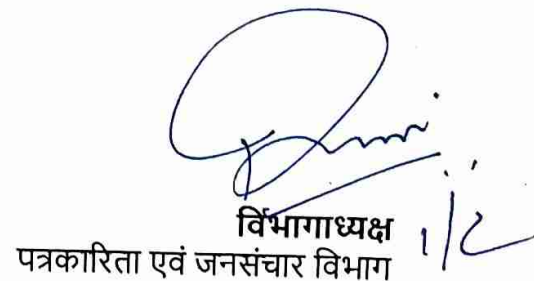 विभागाध्यक्ष
पत्रकारिता एवं जनसंचार विभाग